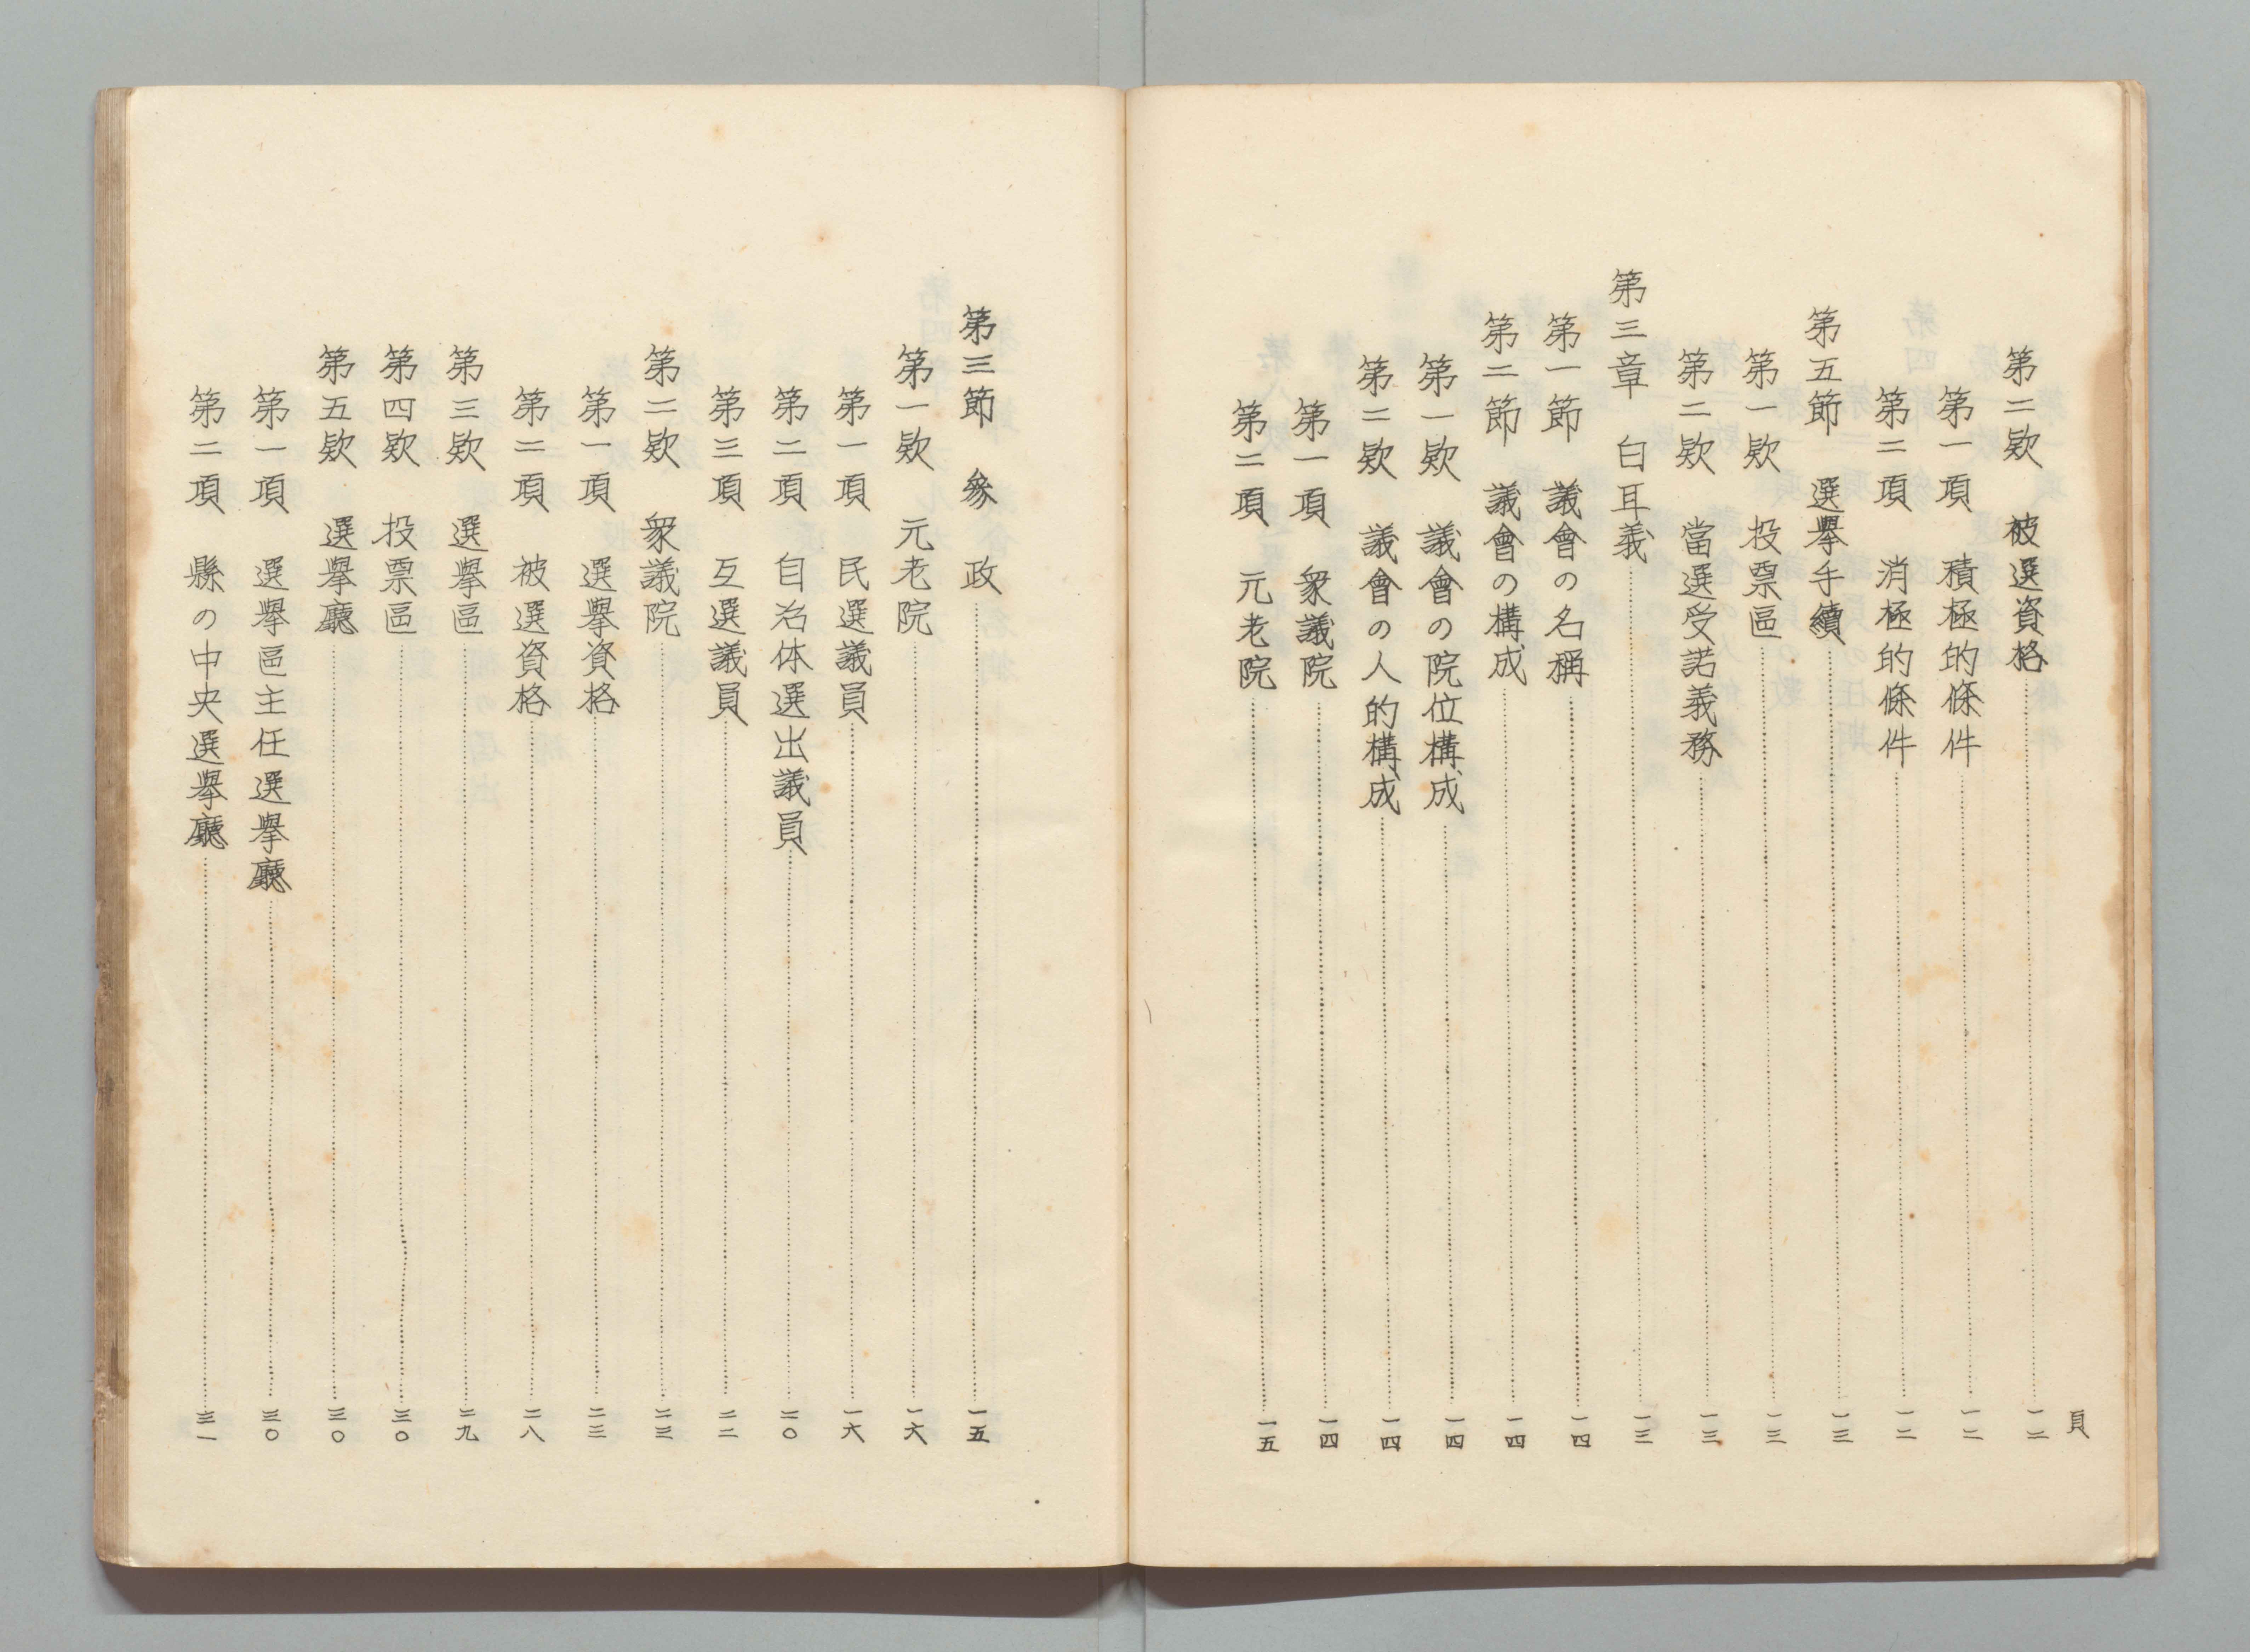 頁
第二欵　被選資格……一二
第一項　積極的條件……一二
第二項　消極的條件……一二
第五節　選擧手續……一三
第一欵　投票區……一三
第二欵　當選受諾義務……一三
第三章　白耳義……一三
第一節　議會の名稱……一四
第二節　議會の構成……一四
第一欵　議會の院位構成……一四
第二欵　議會の人的構成……一四
第一項　衆議院……一四
第二項　元老院……一五
第三節　參　政……一五
第一欵　元老院……一六
第一項　民選議員……一六
第二項　自治体選出議員……二〇
第三項　互選議員……二二
第二欵　衆議院……二三
第一項　選擧資格……二三
第二項　被選資格……二八
第三欵　選擧區……二九
第四欵　投票區……三〇
第五欵　選擧廳……三〇
第一項　選擧區主任選擧廳……三〇
第二項　縣の中央選擧廳……三一